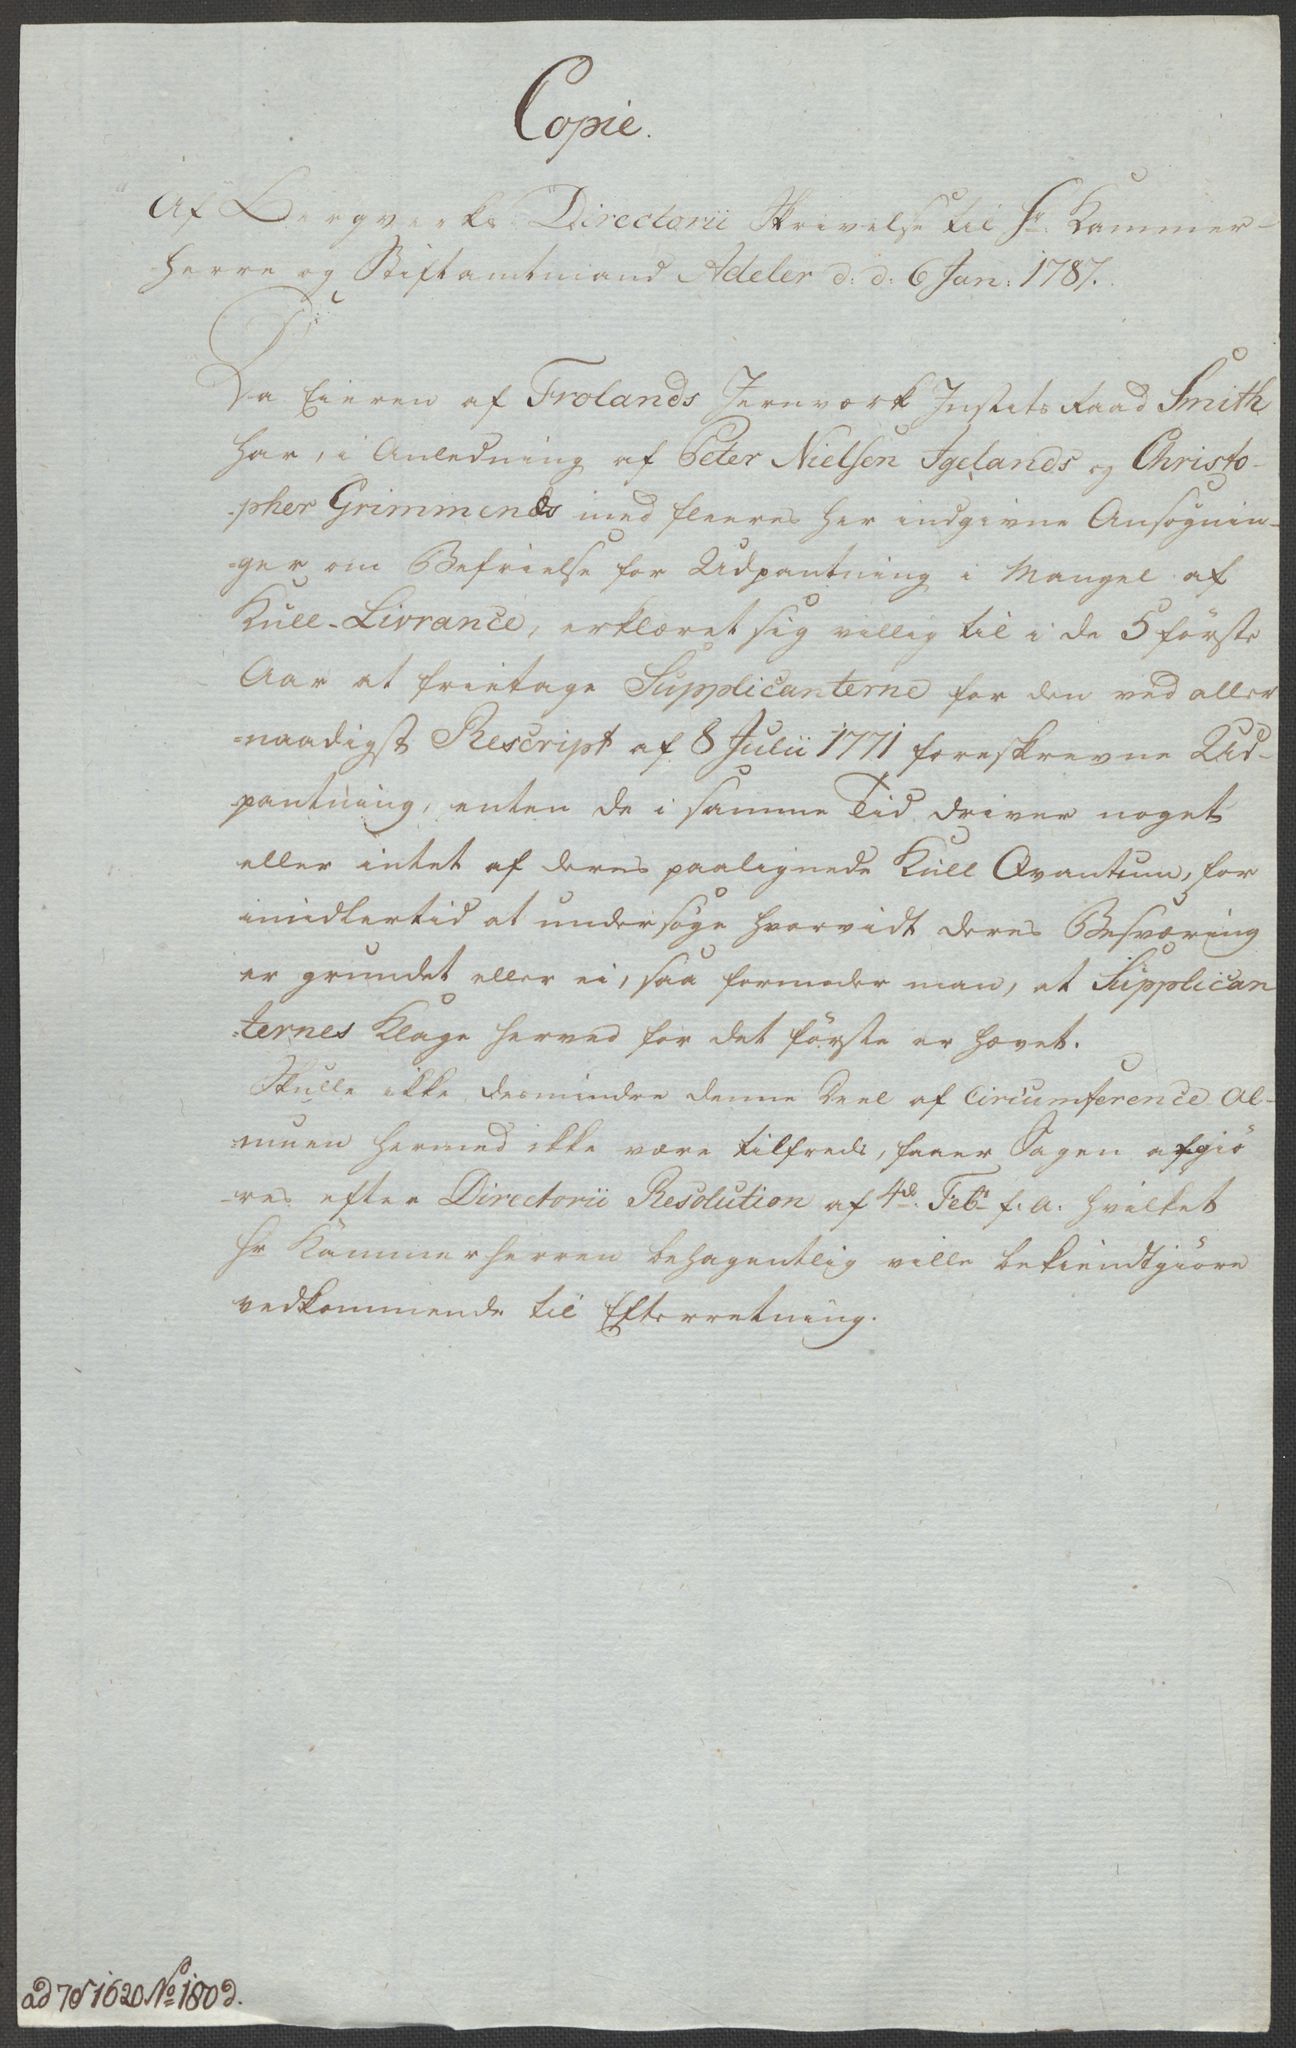 Copie.
Af Bergverks Directorii Skrivelse til Hr. Kammer-
herre og Stiftamtmand Adeler d: d: 6 Jan: 1787.
Da Eieren af Frolands Jernværk Justits Raad Smith
har, i Anledning af Peter Nielsen Igelands og Christo-
-pher Grimmends med fleeres her indgivne Ansøgnin-
-ger om Befrielse for Udpantning i Mangel af
Kull-Livrance, erklæret sig villig til i de 5 første
Aar at frietage Supplicanterne for den ved aller
-naadigst Rescript af 8 Julii 1771 foreskrevne Ud-
pantning, enten de i samme Tid driver noget
eller intet af deres paalignede Kull Qvantum, for
imidlertid at undersøge hvorvidt deres Besværing
er grundet eller ei, saa formoder man, at Supplican
-ternes Klage herved for det første er hævet.
Skulle ikke desmindre denne Deel af Circumference Al-
-muen hermed ikke være tilfreds, faaer Sagen afgiö
-res efter Directorii Resolution af 4de Febr f: a: hvilket
Hr Kammerherren behagentlig ville bekiendtgiöre
vedkommende til Efterretning.
ad 1620 No 180 d.